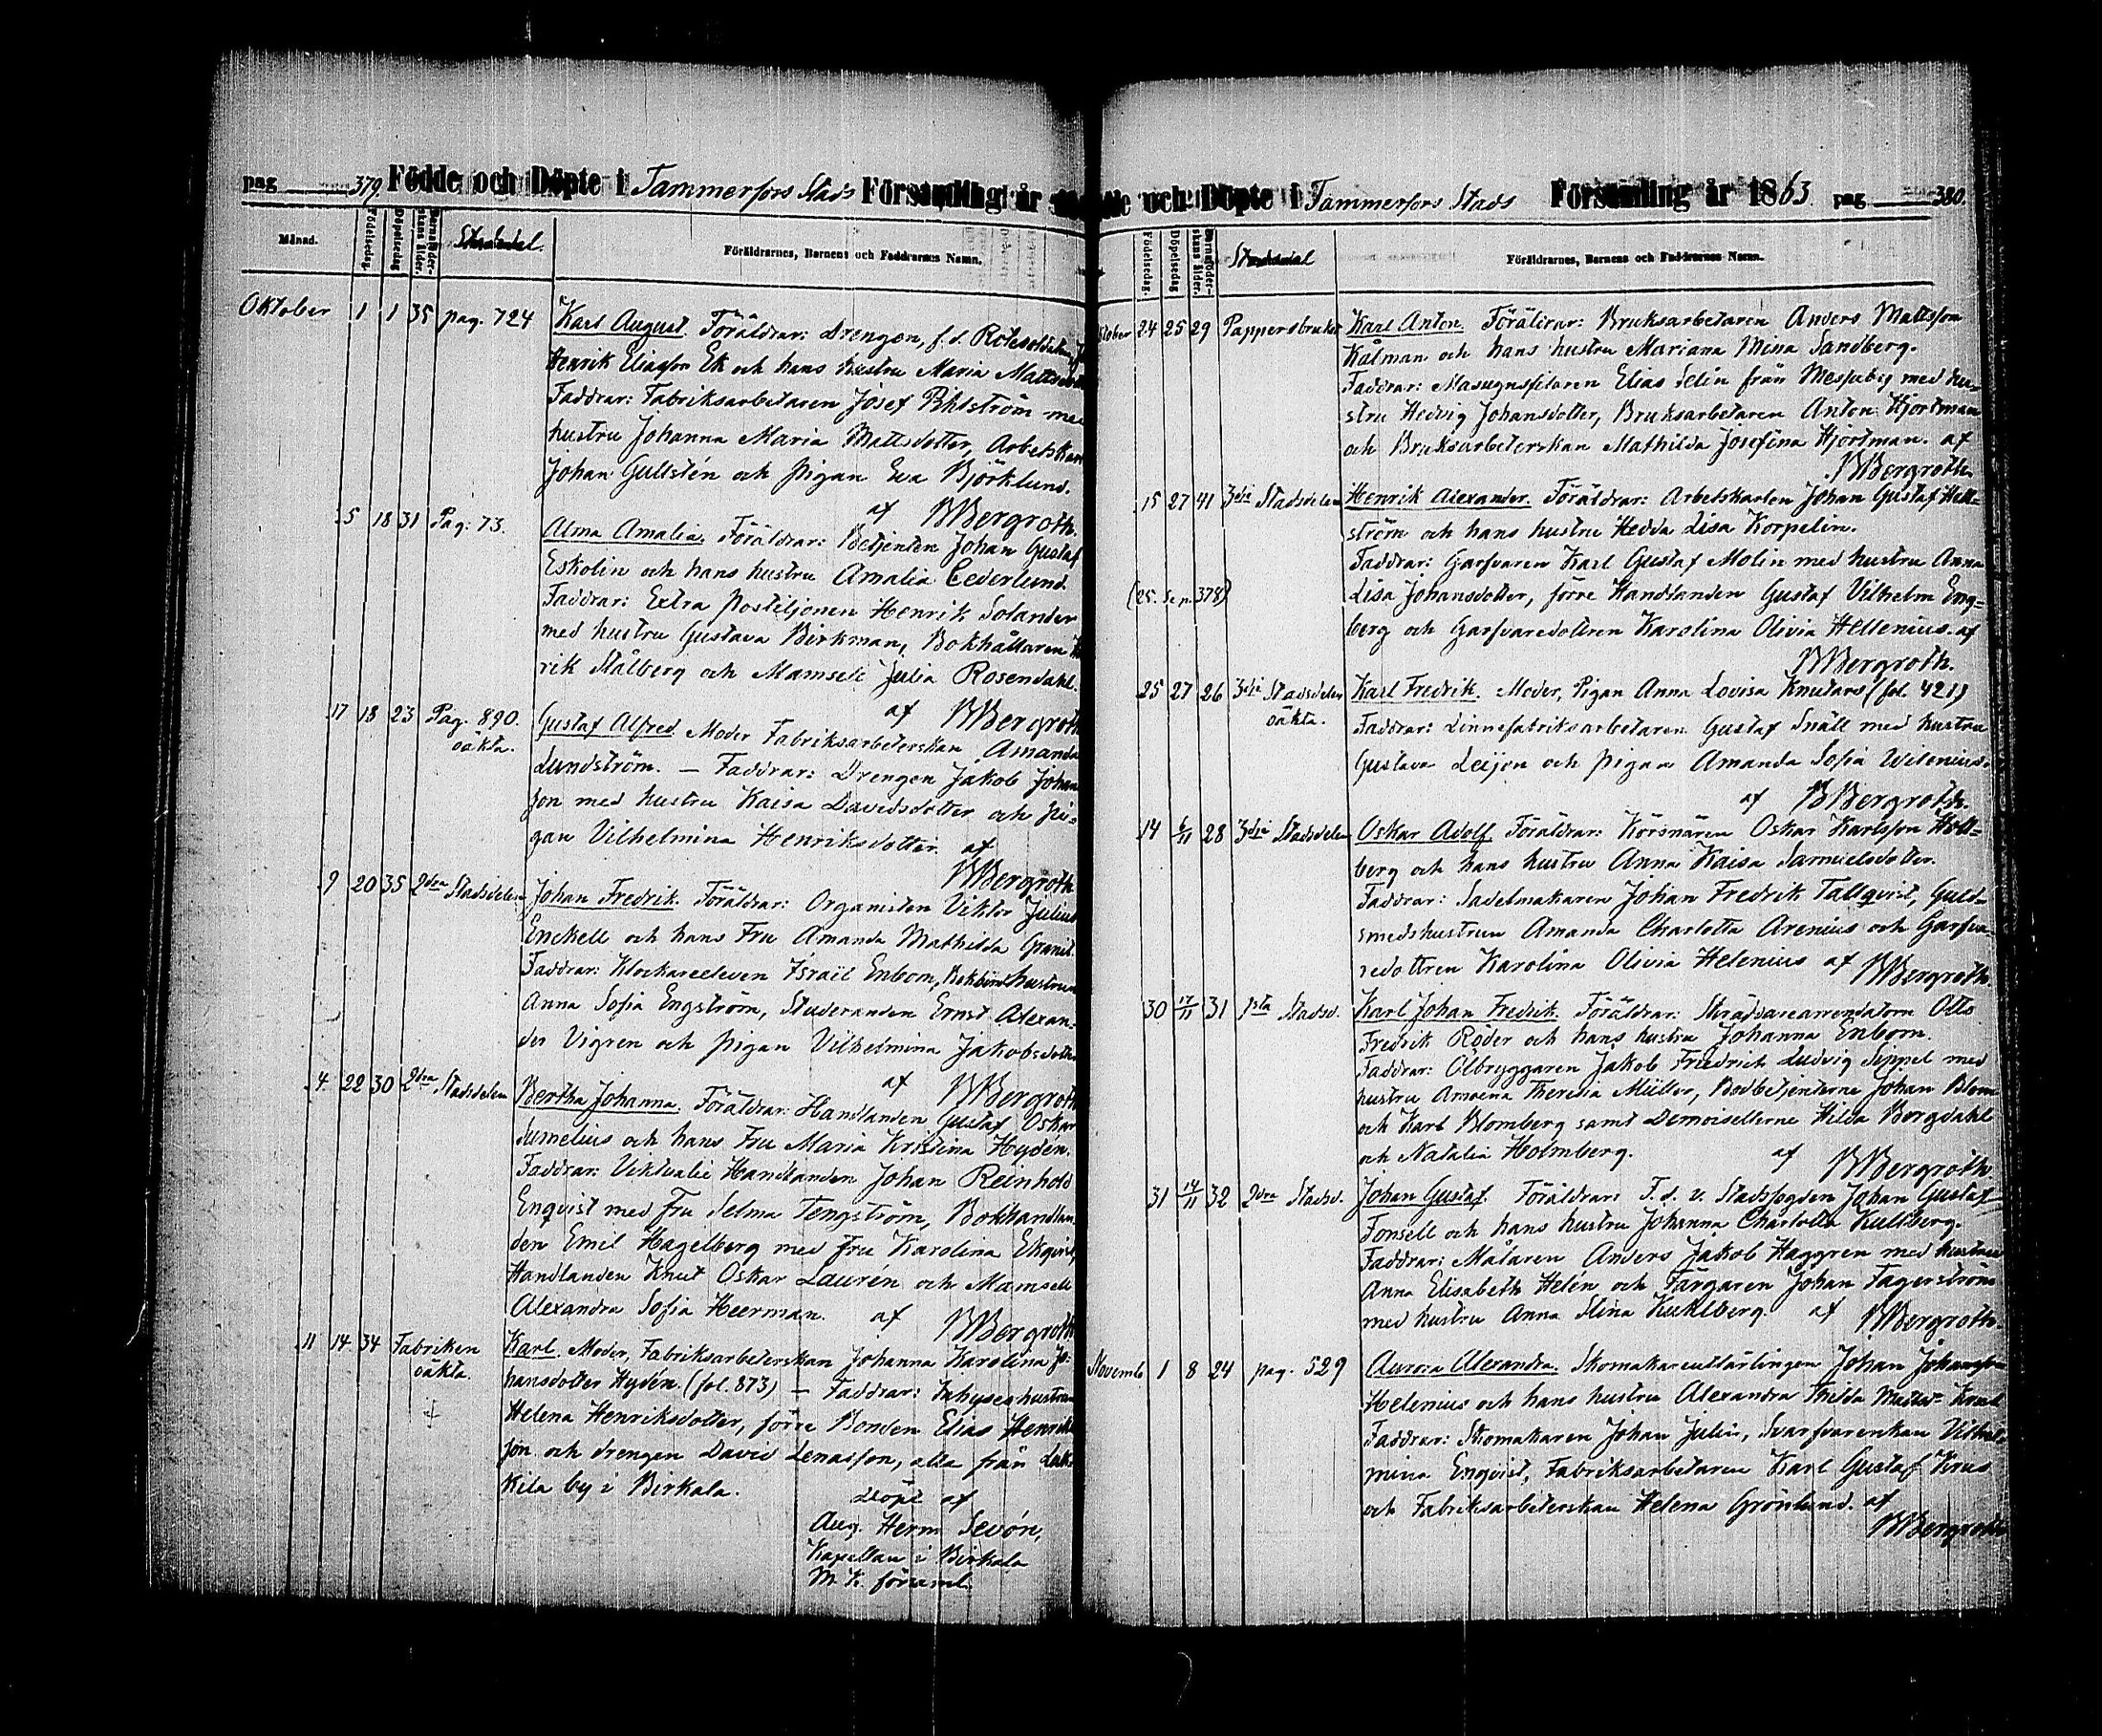 pag 379 Födde och Döpte i Tammerfors Stads Församling år
Månad. Födelsedag. Döpelsedag Barnaföder-skans ålder. Föräldrarnes, Barnens och Faddrarnes Namn.
Oktober 1 1 35 pag. 724 Karl August. Föräldrar: Drengen, f.d. Rotesoldaten
Henrik Eliasson Ek och hans hustru Maria
Faddrar: Fabriksarbetaren Josef Pihlström med
hustru Johanna Maria Mattsdotter, Arbetskarl
Johan Gullstén och pigan Eva Björklund.
af BBergroth.
5 18 31 Pag. 73. Alma Amalia. Föräldrar: Betjenten Johan Gustaf
Eskolin och hans hustru Amalia Cederlund.
Faddrar: Extra postiljonen Henrik Solander
med hustru Gustava Birkman, Bokhållaren
rik Stålberg och Mamsell Julia Rosendahl.
af BBergroth
17 18 23 Pag. 890. Gustaf Alfred Moder Fabriksarbeterskan Amanda
oäkta. Lundström. — Faddrar: Drengen Jakob Johan
son med hustru Kaisa Davidsdotter och pi-
gan Vilhelmina Henriksdotter. af
BBergroth
9 20 35 2dra Stadsdelen Johan Fredrik. Föräldrar: Organisten Viktor Julius
Enckell och hans Fru Amanda Mathilda Granit.
Faddrar: Klockareeleven Israël Enbom, hustrun
Anna Sofia Engström, Studeranden Ernst Alexan-
der Vigren och pigan Vilhelmina Jakobsdotter
af BBergroth
4 22 30 2dra Stadsdelen Bertha Johanna. Föräldrar: Handlanden Gustaf Oskar
Sumelius och hans Fru Maria Kristina Hydén.
Faddrar: Viktualie Handlanden Johan Reinhold
Enqvist med Fru Selma Tengström, Bokhandlan
den Emil Hagelberg med Fru Karolina Ekqvist,
Handlanden Knut Oskar Laurén och Mamsell
Alexandra Sofia Heerman. af BBergroth
11 14 34 Fabriken Karl. Moder, Fabriksarbeterskan Johanna Karolina Jo-
oäkta. hansdotter Hydén. (fol. 873) — Faddrar: Inhyseshustrun
Helena Henriksdotter, förre Bonden Elias Henriks
son och drengen David Lenasson, alla från
kila by i Birkala.
Döpt af
Aug. Herm. Sevón,
Kapellan i Birkala
M. K. församl.
och Döpte i Tammerfors Stads Församling år 1863 pag 380.
Födelsedag. Döpelsedag Barnaföder-skans ålder. Föräldrarnes, Barnens och Faddrarnes Namn.
Oktober 24 25 29 Pappersbruket Karl Anton. Föräldrar: Bruksarbetaren Anders Mattsson
Kålman och hans hustru Mariana Mina Sandberg.
Faddrar: Masugnsfilaren Elias Selin från med hu-
stru Hedvig Johansdotter, Bruksarbetaren Anton Hjortman
och Bruksarbeterskan Mathilda Josefina Hjortman. af
BBergroth.
15 27 41 3dje Stadsdelen Henrik Alexander. Föräldrar: Arbetskarlen Johan Gustaf Hell-
ström och hans hustru Hedda Lisa Korpelin.
Faddrar: Garfvaren Karl Gustaf Molin med hustru Anna
(25. Se p. 378) Lisa Johansdotter, förre Handlanden Gustaf Vilhelm Eng-
berg och Garfvaredottren Karolina Olivia Hellenius. af
BBergroth.
25 27 26 3dje Stadsdelen Karl Fredrik. Moder, Pigan Anna Lovisa Knutars (fol. 421)
oäkta. Faddrar: Linnefabriksarbetaren Gustaf Snäll med hustru
Gustava Leijon och pigan Amanda Sofia Wilenius.
af BBergroth.
14 6/11 28 3dje Stadsdelen Oskar Adolf. Föräldrar: Körsnären Oskar Karlsson Holl-
berg och hans hustru Anna Kaisa Samuelsdotter.
Faddrar: Sadelmakaren Johan Fredrik Tallqvist, Guld-
smedshustrun Amanda Charlotta Arenius och Garfva-
redottren Karolina Olivia Helenius af BBergroth.
30 17/11 31 1sta Stadsd. Karl Johan Fredrik. Föräldrar: Skräddarearrendatorn Otto
Fredrik Röder och hans hustru Johanna Enbom.
Faddrar: Ölbryggaren Jakob Friedrich Ludvig Seppel med
hustru Amoena Theresia Müller, Bodbetjenterne Johan Blom
och Karl Blomberg samt Demoisellerne Hilda Bergdahl
och Natalia Holmberg. af BBergroth
31 14/11 32 2dra Stadsd. Johan Gustaf. Föräldrar: T. f. v. Stadsfogden Johan Gustaf
Fonsell och hans hustru Johanna Charlotta Kullberg.
Faddrar: Målaren Anders Jakob Haggren med hustru
Anna Elisabeth Helén och Färgaren Johan Fagerström
med hustru Anna Stina Kuhlberg. af BBergroth.
Novemb 1 8 24 pag. 529 Aurora Alexandra. Skomakareutlärlingen Johan Johansson
Helenius och hans hustru Alexandra
Faddrar: Skomakaren Johan Julin, Svarfvarenkan Vilhel-
mina Enqvist, Fabriksarbetaren Karl Gustaf Krus
och Fabriksarbeterskan Helena Grönlund. af
BBergroth